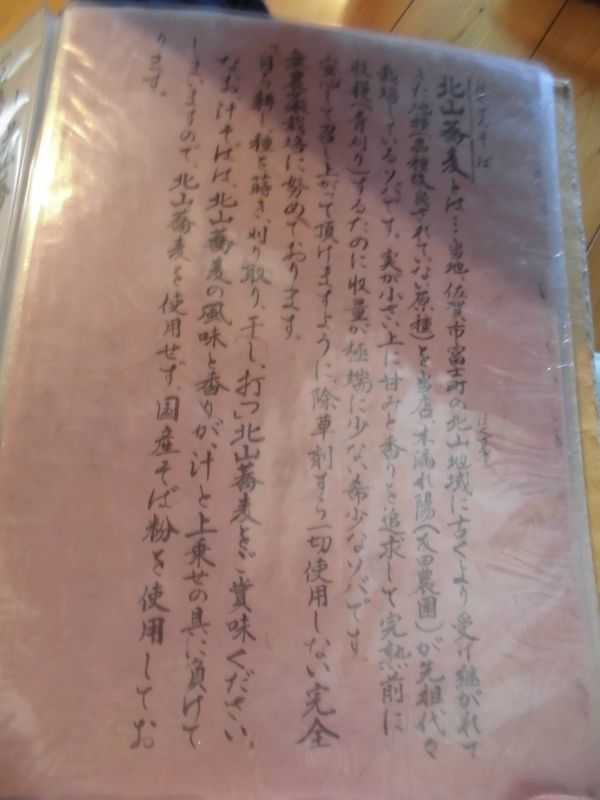 ほくざんそば
北山蕎麦とは…当地、佐賀市富士町の北山地域に古くより受け継がれて
きた地種(品種改良されていない原種)を当店、木漏れ陽(友田農園)が先祖代々
栽培しているソバです。実が小さい上に甘みと香りを追求して完熟前に
収穫(青刈り)するために収量が極端に少ない希少なソバです。
安心して召し上がって頂けますように、除草剤すら一切使用しない完全
無農薬栽培に努めております。
「自ら耕し、種を蒔き、刈り取り、干し、打つ」北山蕎麦をご賞味ください。
なお、汁そばは、北山蕎麦の風味と香りが、汁と上乗せの具に負けて
しまいますので、北山蕎麦を使用せず国産そば粉を使用してお
ります。